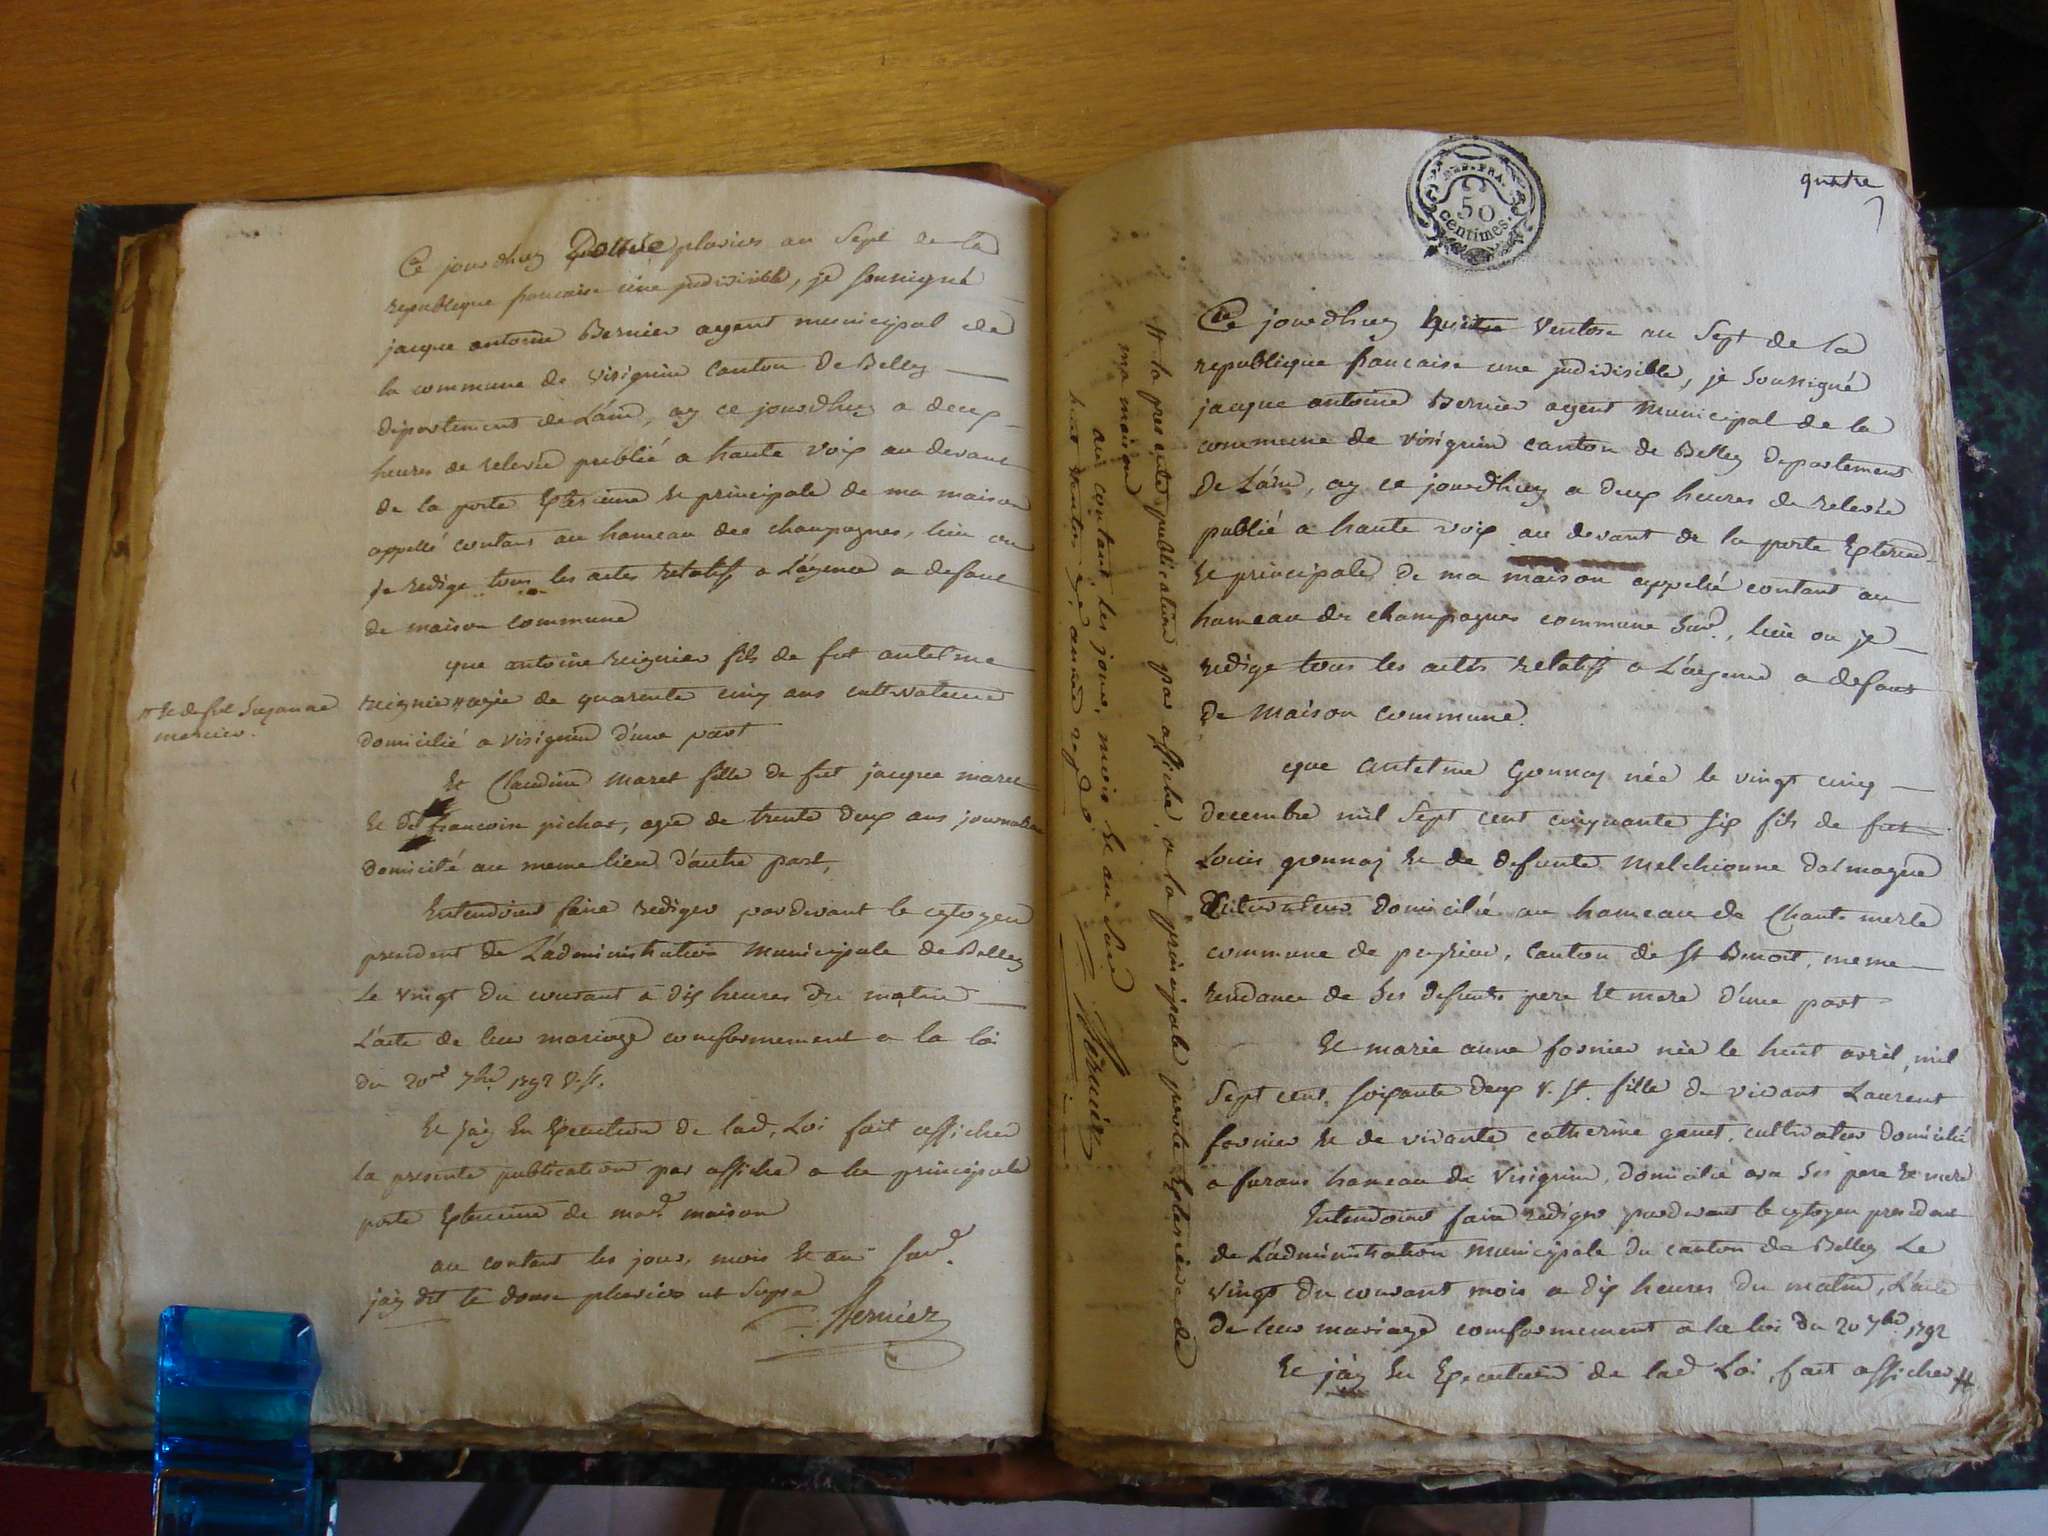 Ce jourdhuy Douze pluvios an Sept de la
republique francaise une jndivisible, je soussigné
jacque antoine Bernier agent municipal de
la commune de virignin Canton de Belley
departement de L'ain, ay ce jourdhuy a deux
heures de relevée publié a haute voix au devant
de la porte Exterieure et principale de ma maison
appellé contant au hameau des champagnes, lieu ou
je redige tous les actes relatifs a L'agence a defaut
de maison commune
que antoine reignier fils de fut antelme
reignier # agée de quarente cinq ans cultivateur
# et de fut Suzanne
mercier.
domicilié a virignin d'une part
Et Claudine maret fille de fut jacque maret
et de francoise pichat, agée de trente deux ans journaliere
domicilié au meme lieu d'autre part,
Entendoint faire rediger pardevant le cytoyen
president de L'administration municipale de Belley
Le vingt du courant a dix heures du matin
L'acte de leur mariage conformement a la loi
du 20me 7bre 1792 V.st.
Et j'ay En Execution de lad. Loi fait afficher
la presente publication par affiche a la principale
porte Exterieure de mad. maison
au contant les jour, mois et an sud.
j'ay dit le douze pluvios ut Supra
Bernier
quatre
REP. FRA.
50
centimes.
Ce jourdhuy huit Ventose an Sept de la
republique francaise une jndivisible, je Soussigné
jacque antoine Bernier agent municipal de la
commune de virignin canton de Belley departement
de L'ain, ay ce jourdhuy a deux heures de relevée
publié a haute voix au devant de la porte Exterieure
et principale de ma maison appellé contant au
hameau des champagnes commune Sud., lieu ou je
redige tous les actes relatifs a L'agence a defaut
de maison commune.
que antelme Gonnay née le vingt cinq
decembre mil Sept cent cinquante six fils de fut
Louis gonnay et de defunte melchionne dalmagne
Cultivateur domicilié au hameau de Chantemerle
commune de peyrieu, Canton de St Benoit, meme
rendance de Ses defunts pere et mere d'une part
et marie anne fornier née le huit avril mil
Sept cent soixante deux v. St. fille de vivant Laurent
fornier et de vivante catherine ganet, cultivateur domicilié
a furans hameau de virignin, domicilié avec Ses pere et mere
Entendoint faire rediger pardevant le cytoyen president
de L'administration municipale du canton de Belley Le
vingt du courant mois a dix heures du matin, L'acte
de leur mariage conformement a la loi du 20 7bre 1792
et j'ay En Execution de lad Loi, fait afficher #
# la presente publication par affiche, a la principale porte Exterieure de
ma maison
au contant les jour, mois et an sud
huit ventos
Bernier